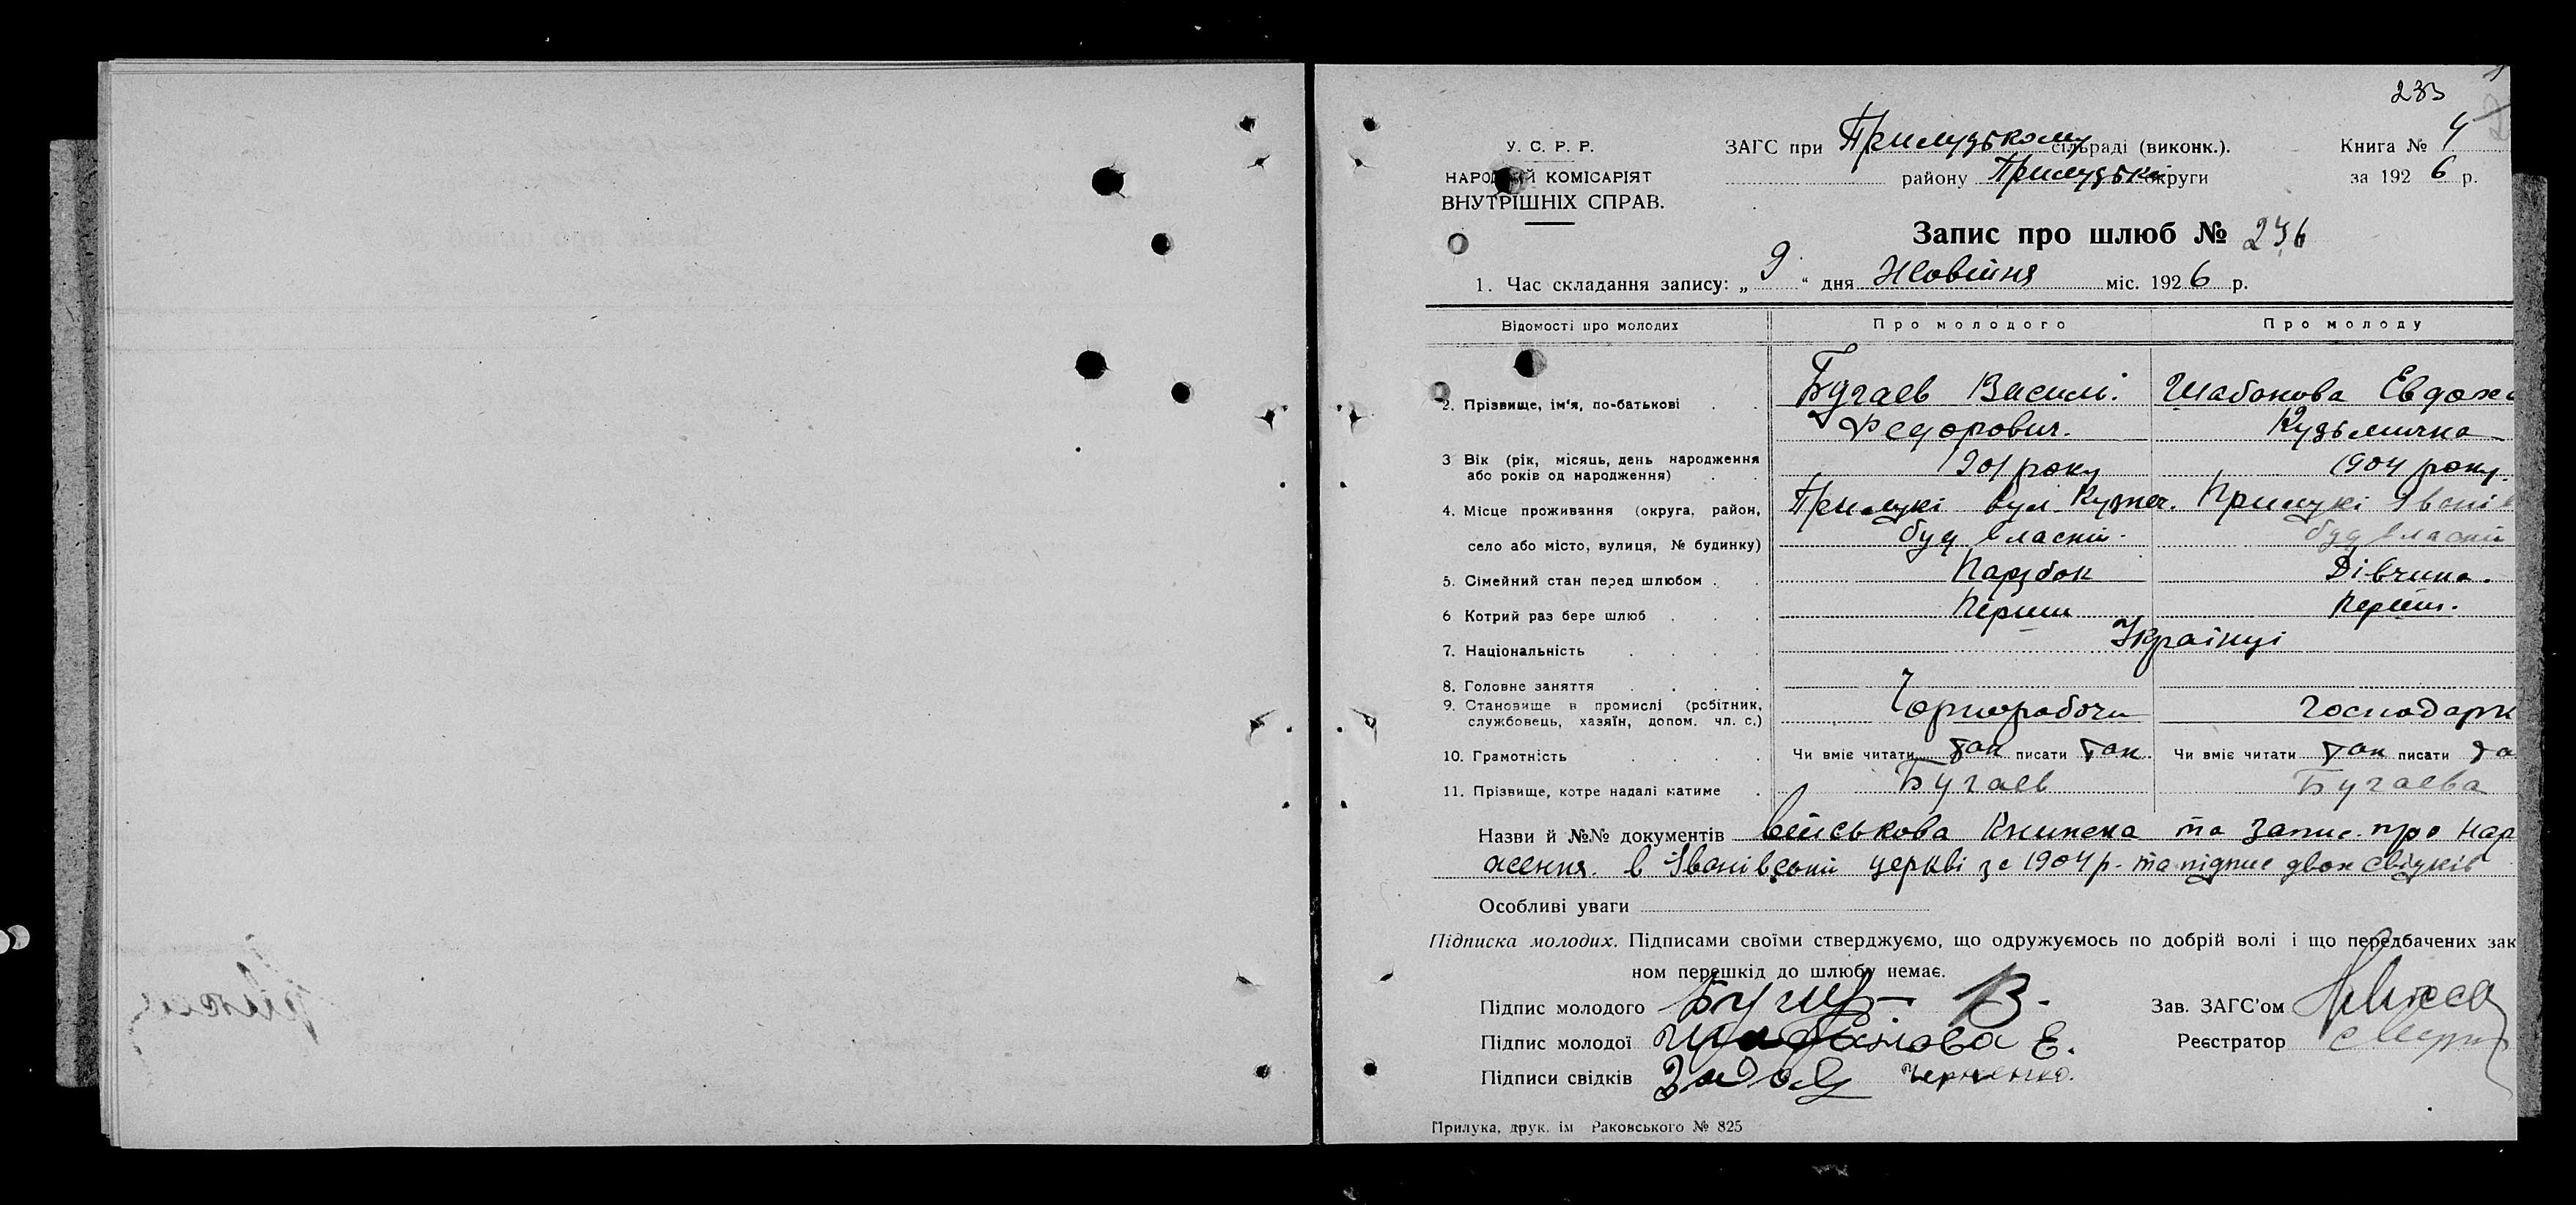 233
У. С. Р. Р.
НАРОДНИЙ КОМІСАРІЯТ
ВНУТРІШНІХ СПРАВ.
ЗАГС при Прилуцькому сільраді (виконк.).
району Прилуцька округи
Книга № 4
за 1926 р.
Запис про шлюб № 246
1. Час складання запису: „ 9 " дня Жовтня міс. 1926 р.
Відомості про молодих Про молодого Про молоду
2. Прізвище, ім'я, по-батькові Бугаев Василі. Шабанова Евдох
Федорович. Кузьминка
3 Вік (рік, місяць, день народження
або років од народження) 1901 року 1904 року.
4. Місце проживання (округа, район, Прилукі вул. Кузнеч. Прилукі Івані
село або місто, вулиця, № будинку) буд власний. буд власний
5. Сімейний стан перед шлюбом Парубок Дівчина.
6 Котрий раз бере шлюб Перший Перший.
7. Національність Українці
8. Головне заняття
9. Становище в промислі (робітник,
службовець, хазяїн, допом. чл. с.) Чорноробочи Господарк
10. Грамотність Чи вміє читати так писати так. Чи вміє читати так писати та
11. Прізвище, котре надалі матиме Бугаев Бугаева
Назви й №№ документів Військова Книжка та запис про нар
ження. в Іванівській церкві за 1904 р. та підпис двох свідків
Особливі уваги
Підписка молодих. Підписами своїми стверджуємо, що одружуємось по добрій волі і що передбачених зак
ном перешкід до шлюбу немає.
Підпис молодого Бугаев В.
Зав. ЗАГС'ом
Підпис молодої Шабанова Е.
Реєстратор
Підписи свідків Черненко.
Прилука, друк. ім Раковського № 825